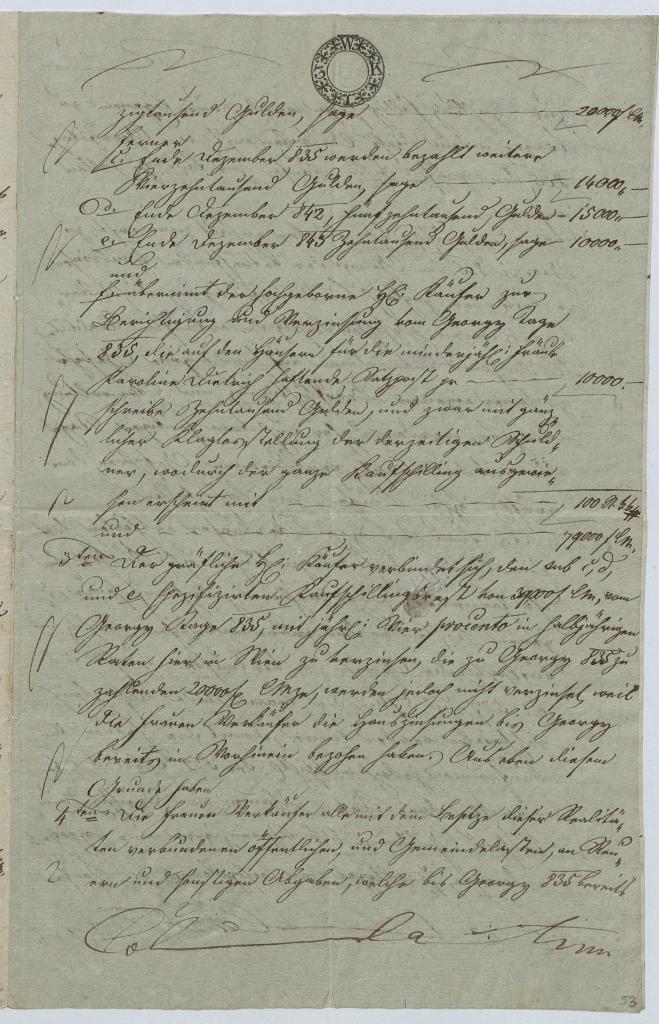 zigtausend Gulden, sage — 20000 f CM.
ferner
c. Ende Dezember 835 werden bezahlt weitere
Vierzehntausend Gulden, sage — 14000,, —
d. Ende Dezember 842, fünfzehntausend Gulden — 15000,, —
e. Ende Dezember 845 Zehntausend Gulden, sage — 10000,, —
und
übernimt der hochgeborne H: Käufer zur
Berichtigung und Verzinsung vom Georgy Tage
835, die auf den Häusern für die minderjähr: Fräule
Karoline Dietrich haftende Satzpost pr — 10000. —
schreibe Zehntausend Gulden, und zwar mit gänz
licher Klaglosstellung der derzeitigen Schuld-
ner, wodurch der ganze Kaufschilling ausgewie-
sen erscheint mit — 100
und — 79000 f CM.
3tens Der gräfliche H: Käufer verbindet sich, den sub c, d,
und e spezifizirten Kaufschillingsrest von 39000 f CM, vom
Georgy Tage 835, mit jährl: Vier procento in halbjährigen
Raten hier in Wien zu verzinsen, die zu Georgy 835 zu
zahlenden 20,000 f CMze, werden jedoch nicht verzinset, weil
die Frauen Verkäufer die Hauszinsungen bis Georgy
bereits in Vorhinein bezohen haben. Aus eben diesem
Grunde haben
4tens Die Frauen Verkäufer alle mit dem Besitze dieser Realitä-
ten verbundenen öffentlichen, und Gemeindelasten, an Steu-
ern und sonstigen Abgaben, welche bis Georgy 835 bereits
53